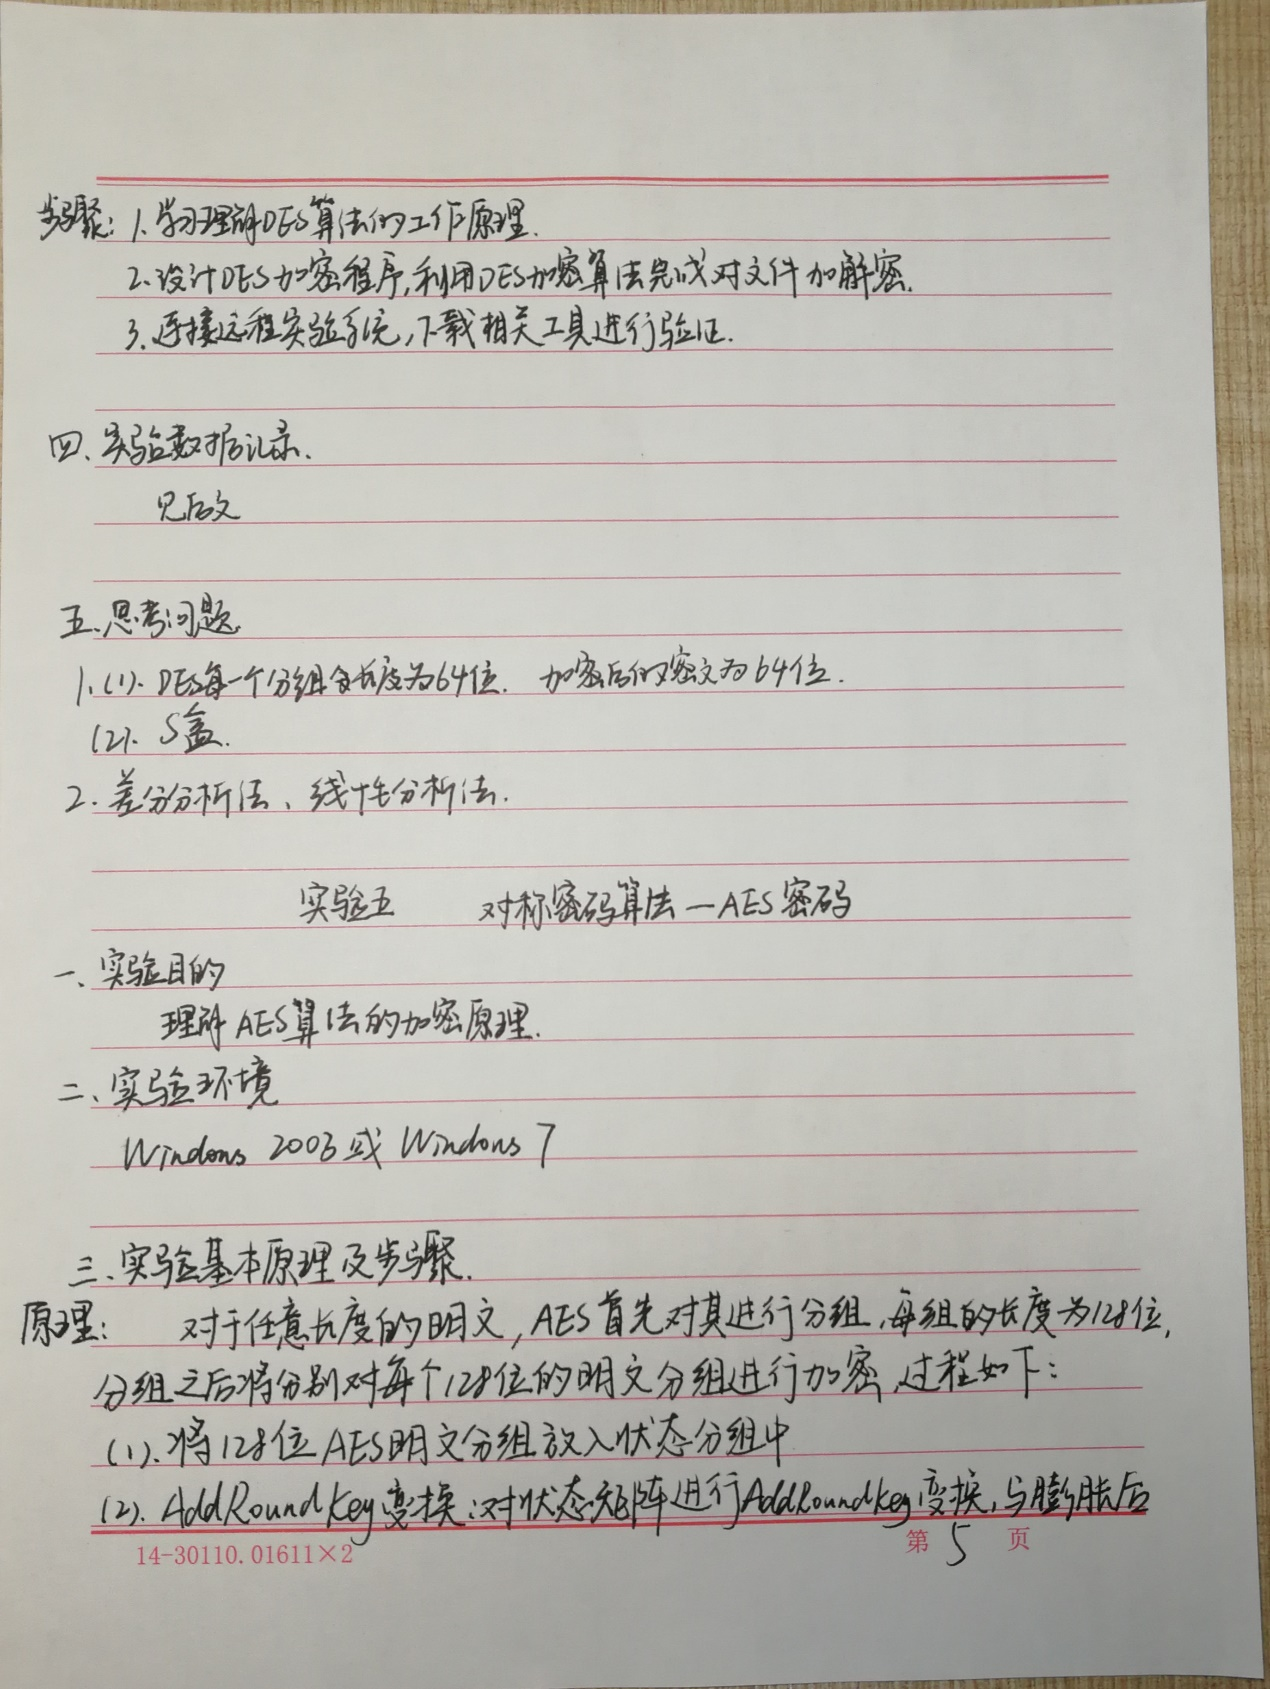 步骤: 1. 学习理解DES算法的工作原理.
2. 设计DES加密程序,利用DES加密算法完成对文件加解密.
3. 连接远程实验系统,下载相关工具进行验证.
四、实验数据记录.
见后文
五、思考问题.
1. (1). DES每一个分组长度为64位. 加密后的密文为64位.
(2). S盒.
2. 差分分析法、线性分析法.
实验五 对称密码算法—AES密码
一、实验目的
理解AES算法的加密原理.
二、实验环境
Windows 2003或 Windows 7
三、实验基本原理及步骤.
原理: 对于任意长度的明文,AES首先对其进行分组,每组的长度为128位,
分组之后将分别对每个128位的明文分组进行加密,过程如下:
(1). 将128位AES明文分组放入状态分组中
(2). AddRoundKey变换:对状态矩阵进行AddRoundKey变换,与膨胀后
14-30110.01611×2 第 5 页